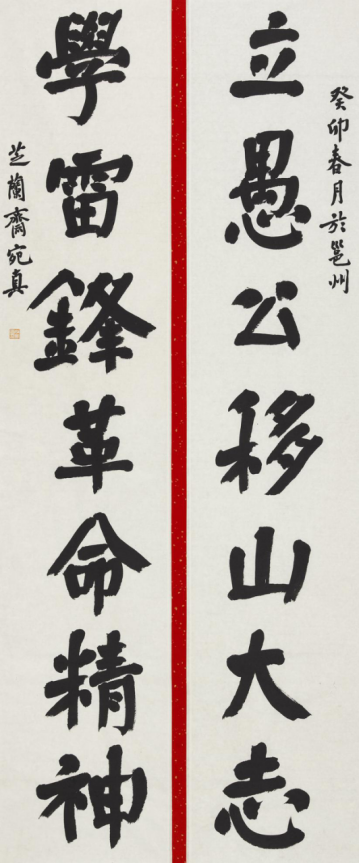 癸卯春月於邕州
立愚公移山大志
學雷鋒革命精神
芝蘭齋宛真